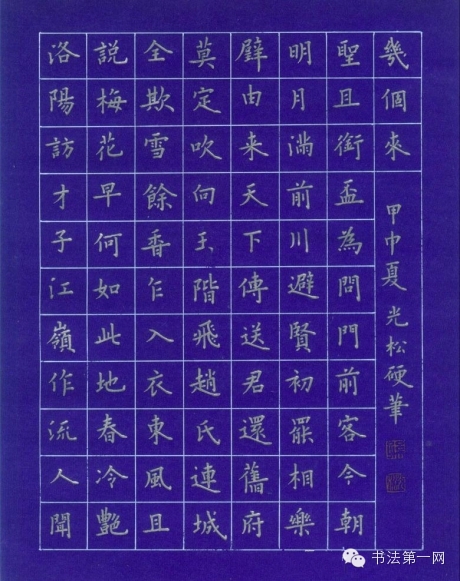 洛陽訪才子江嶺作流人聞
說梅花早何如此地春冷艷
全欺雪餘香乍入衣東風且
莫定吹向玉階飛趙氏連城
璧由来天下傳送君還舊府
明月滿前川避賢初罷相樂
聖且銜盃為問門前客今朝
幾個來
甲申夏光松硬筆
书法第一网